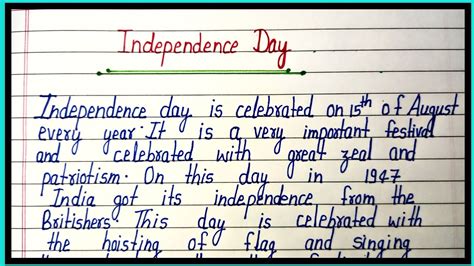 Independence Day
Independence day is celebrated on 15th of August
every year. It is a very important festival
and celebrated with great zeal and
patriotism. On this day in 1947
India got its independence from the
Britishers. This day is celebrated with
the hoisting of flag and singing